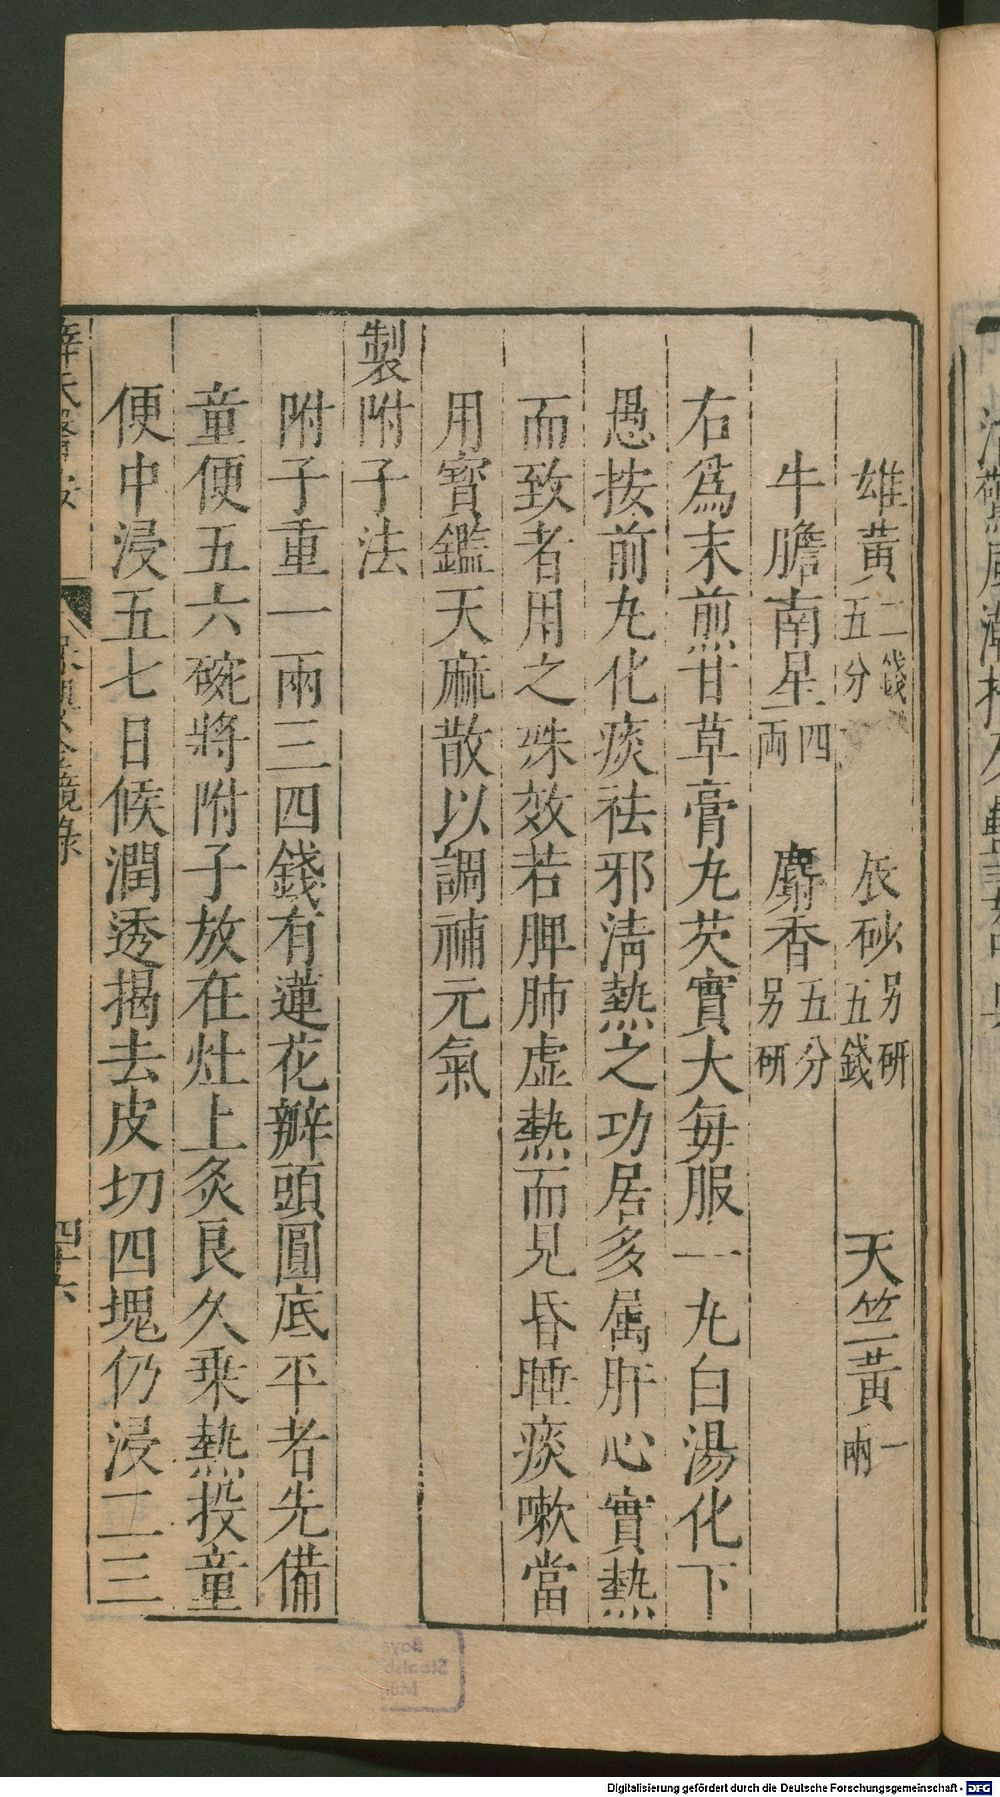 雄黄二錢五分 辰砂另研五錢 天竺黄一兩
牛膽南星四両 麝香五分另研
右爲末煎甘草膏丸芡實大每服一丸白湯化下
愚按前丸化痰祛邪清熱之功居多属肝心實熱
而致者用之殊效若脾肺虚熱而見昏睡痰嗽當
用寳鑑天麻散以調補元氣
製附子法
附子重一兩三四錢有蓮花瓣頭圓底平者先備
童便五六碗將附子放在灶上炙良久乘熱投童
便中浸五七日候潤透揭去皮切四塊仍浸二三
薛氏醫按
四十六
Digitalisierung gefördert durch die Deutsche Forschungsgemeinschaft - DFG